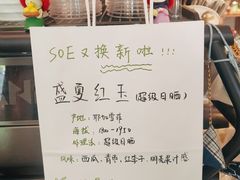 SOE又换新啦!!!
盛夏红玉(超级日晒)
产地:耶加雪菲
海拔:1900-1950
处理法:超级日晒
风味:西瓜、青枣、红李子、明亮果汁感